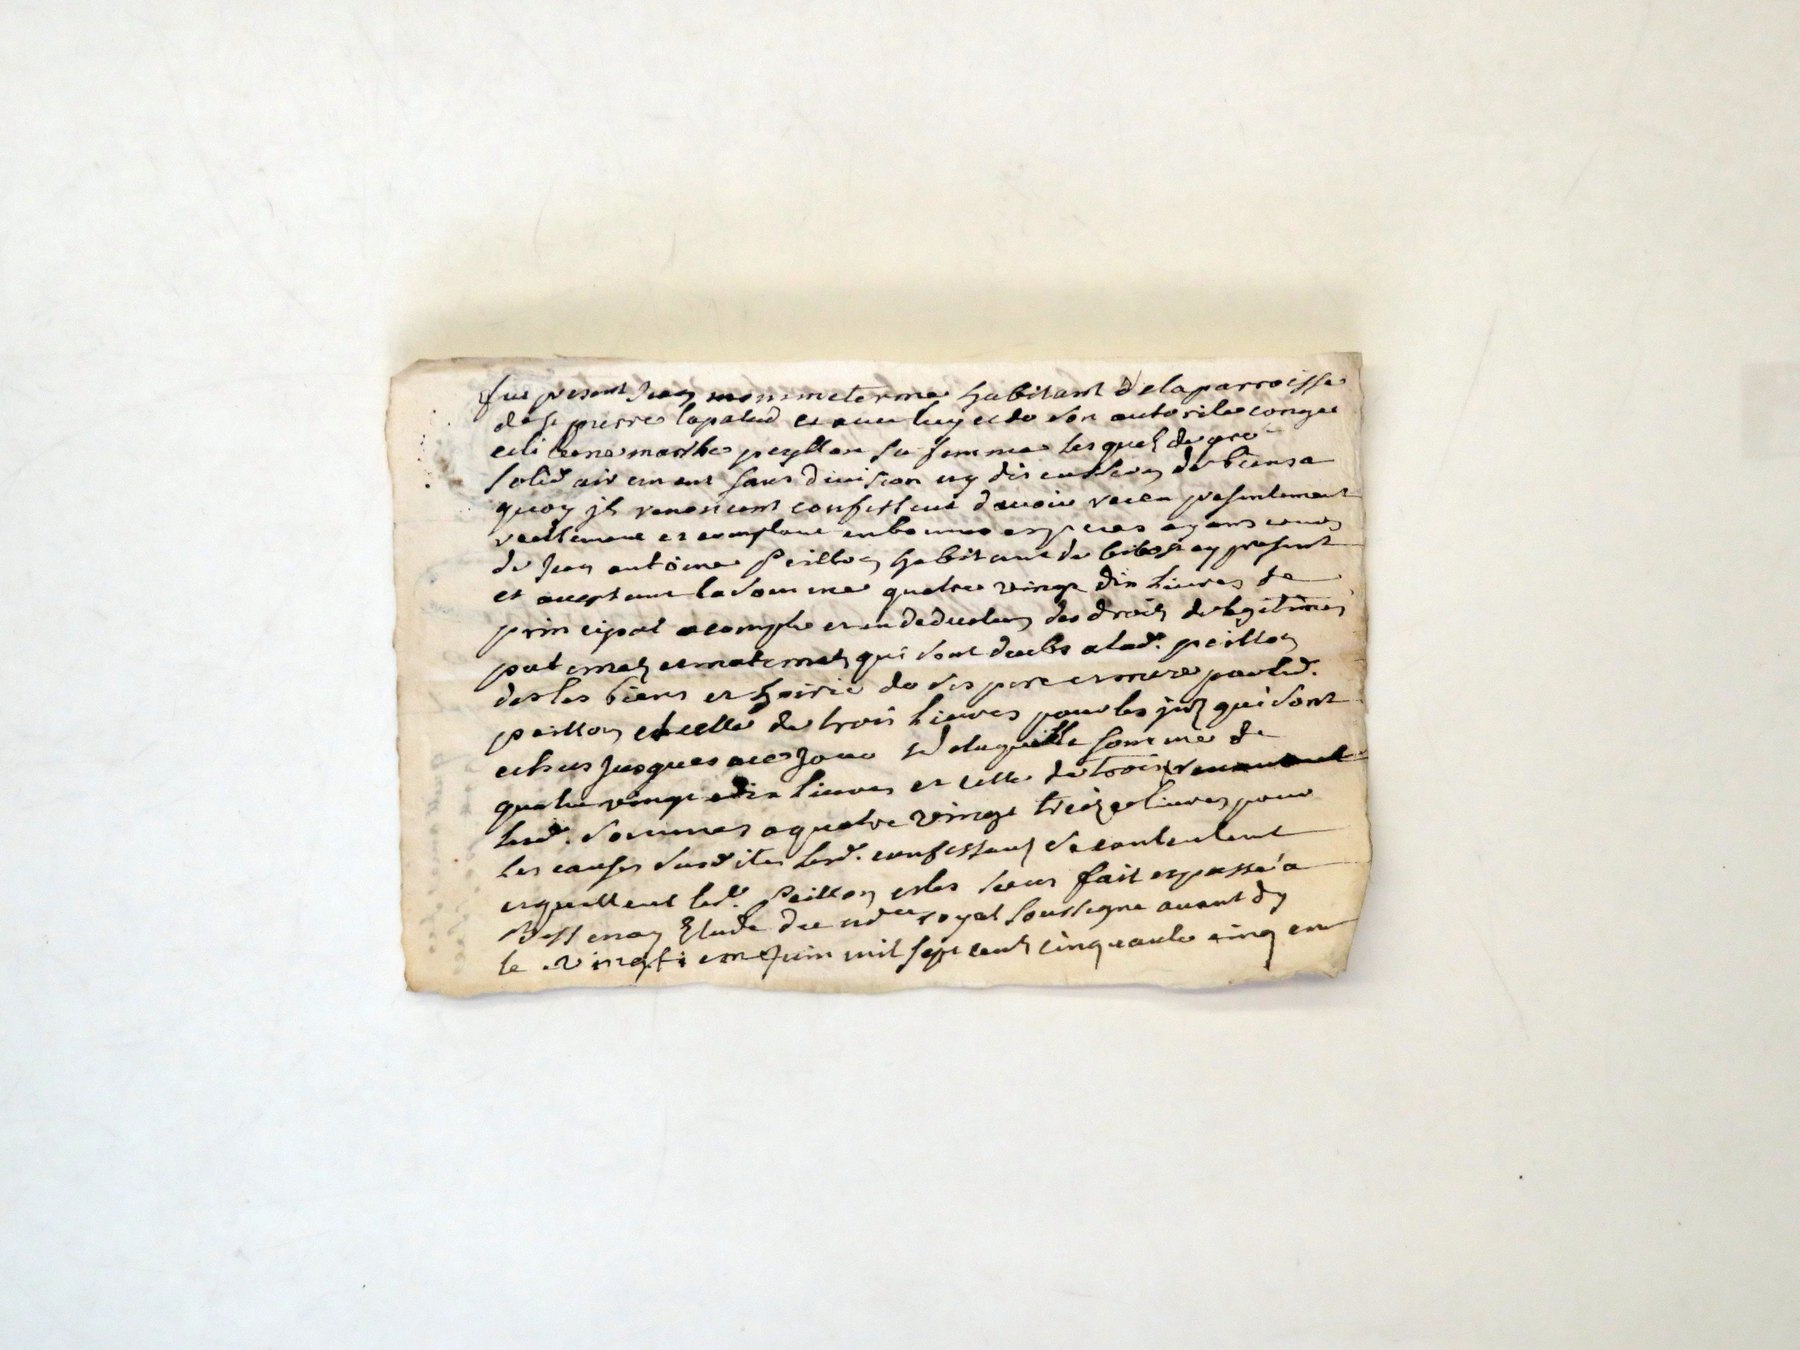 fut present Jean monmeterme habitant de la parroisse
de st pierre lapalud et avec luy et de son autorite conges
et licene marthe peyllon sa femme les quels de gre
solidairement sans division ny discussion de biens a
quoy jls renoncent confessent davoir receu presentement
reellement et comptant en bonnes especes ayans cours
de Jean antoine Peillon habitant de bibost cy present
et aceptant la somme quatre vingt dix livres de
principal a compte et en deduction des droits de legitimes
paternels et maternels qui sont deubs a lad. peillon
des les biens et hoirie de ses pere et mere par led.
peillon et celle de trois livres pour les jnts qui sont
echus jusques a ce jour de laquelle somme de
quatre vingt dix livres et celle de trois revenant
lesd. sommes a quatre vingt treize livres pour
les causes susdites lesd. confessants se contentent
et quittent led. Peillon et les siens fait et passé a
Bessenay Etude du nore royal soussigne avant dy
le vingtiem Juin mil sept cents cinquante cinq en